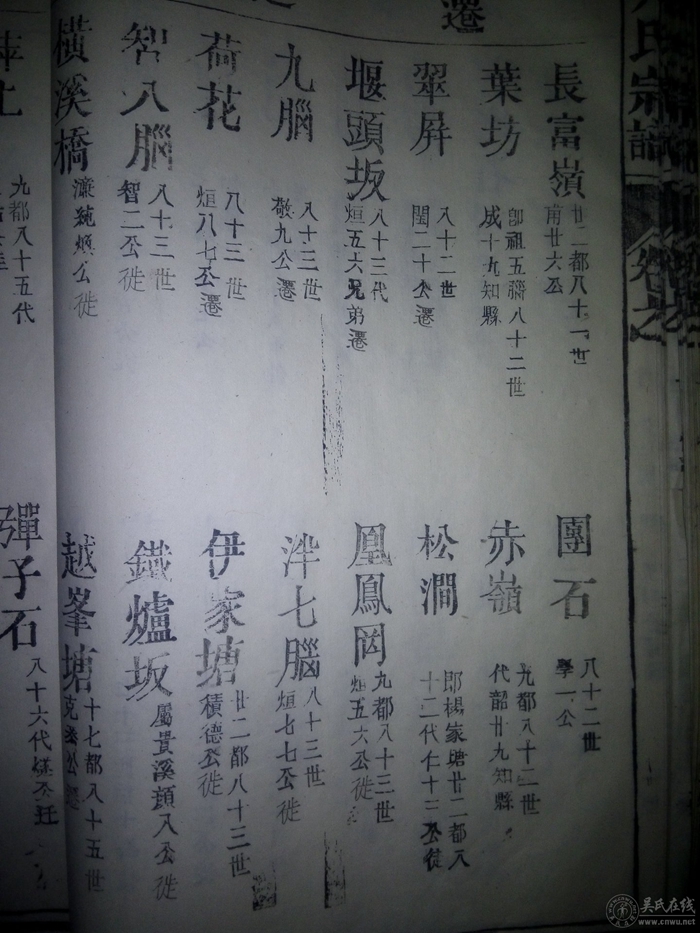 氏宗譜
卷之
遷
長富嶺
廿二都八十一世
南廿六公
葉坊
即祖五腦八十二世
成十九知縣
翠屛
八十二世
閏二十公遷
堰頭坂
八十三代
烜五六兄弟遷
九腦
八十三世
敬九公遷
荷花
八十三世
烜八七公遷
智八腦
八十三世
智二公徙
橫溪橋
濂純煥公徙
九都八十五代
團石
八十二世
學一公
赤嶺
九都八十二世
代韶廿九知縣
松澗
即楊家塘廿二都八
十二代仁十三公徙
凰鳳岡
九都八十三世
烜五六公徙
泮七腦
八十三世
烜七七公徙
伊家塘
廿二都八十三世
積德公徙
鐵爐坂
屬貴溪頴八公徙
越峯塘
十七都八十五世
克公遷
彈子石
八十六代公迁
吳氏在线
www.cnwu.net